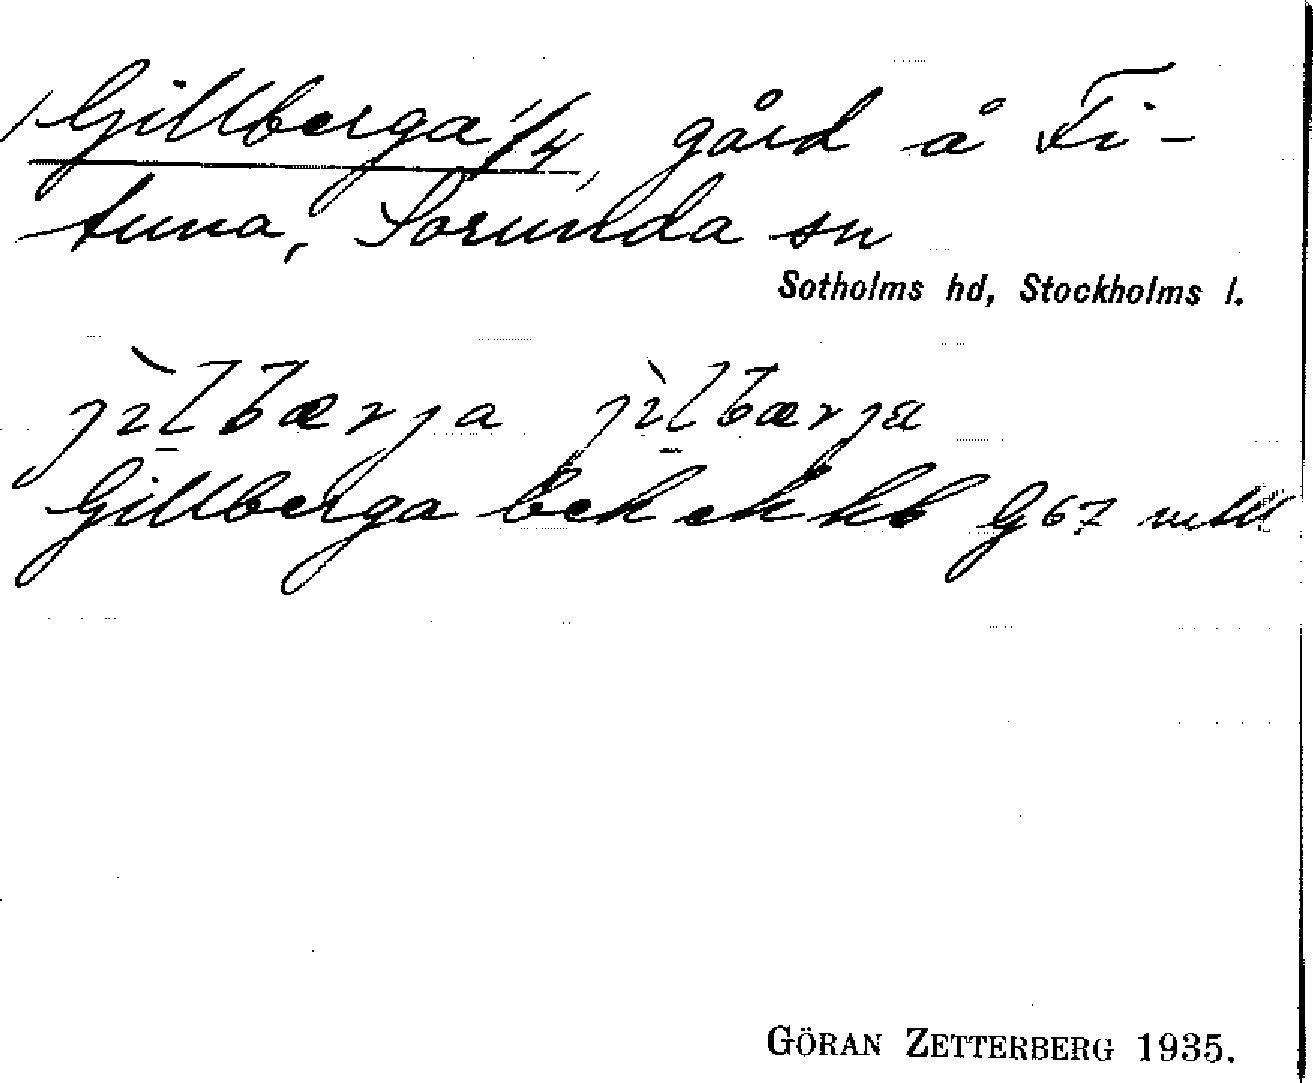 Gillberga 1/4, gård å Fi-
tuna, Sorunda sn
Sotholms hd, Stockholms l.
jìlbærja jìlbærja
Gillberga bek ek kb G 67 mtl
GÖRAN ZETTERBERG 1935.